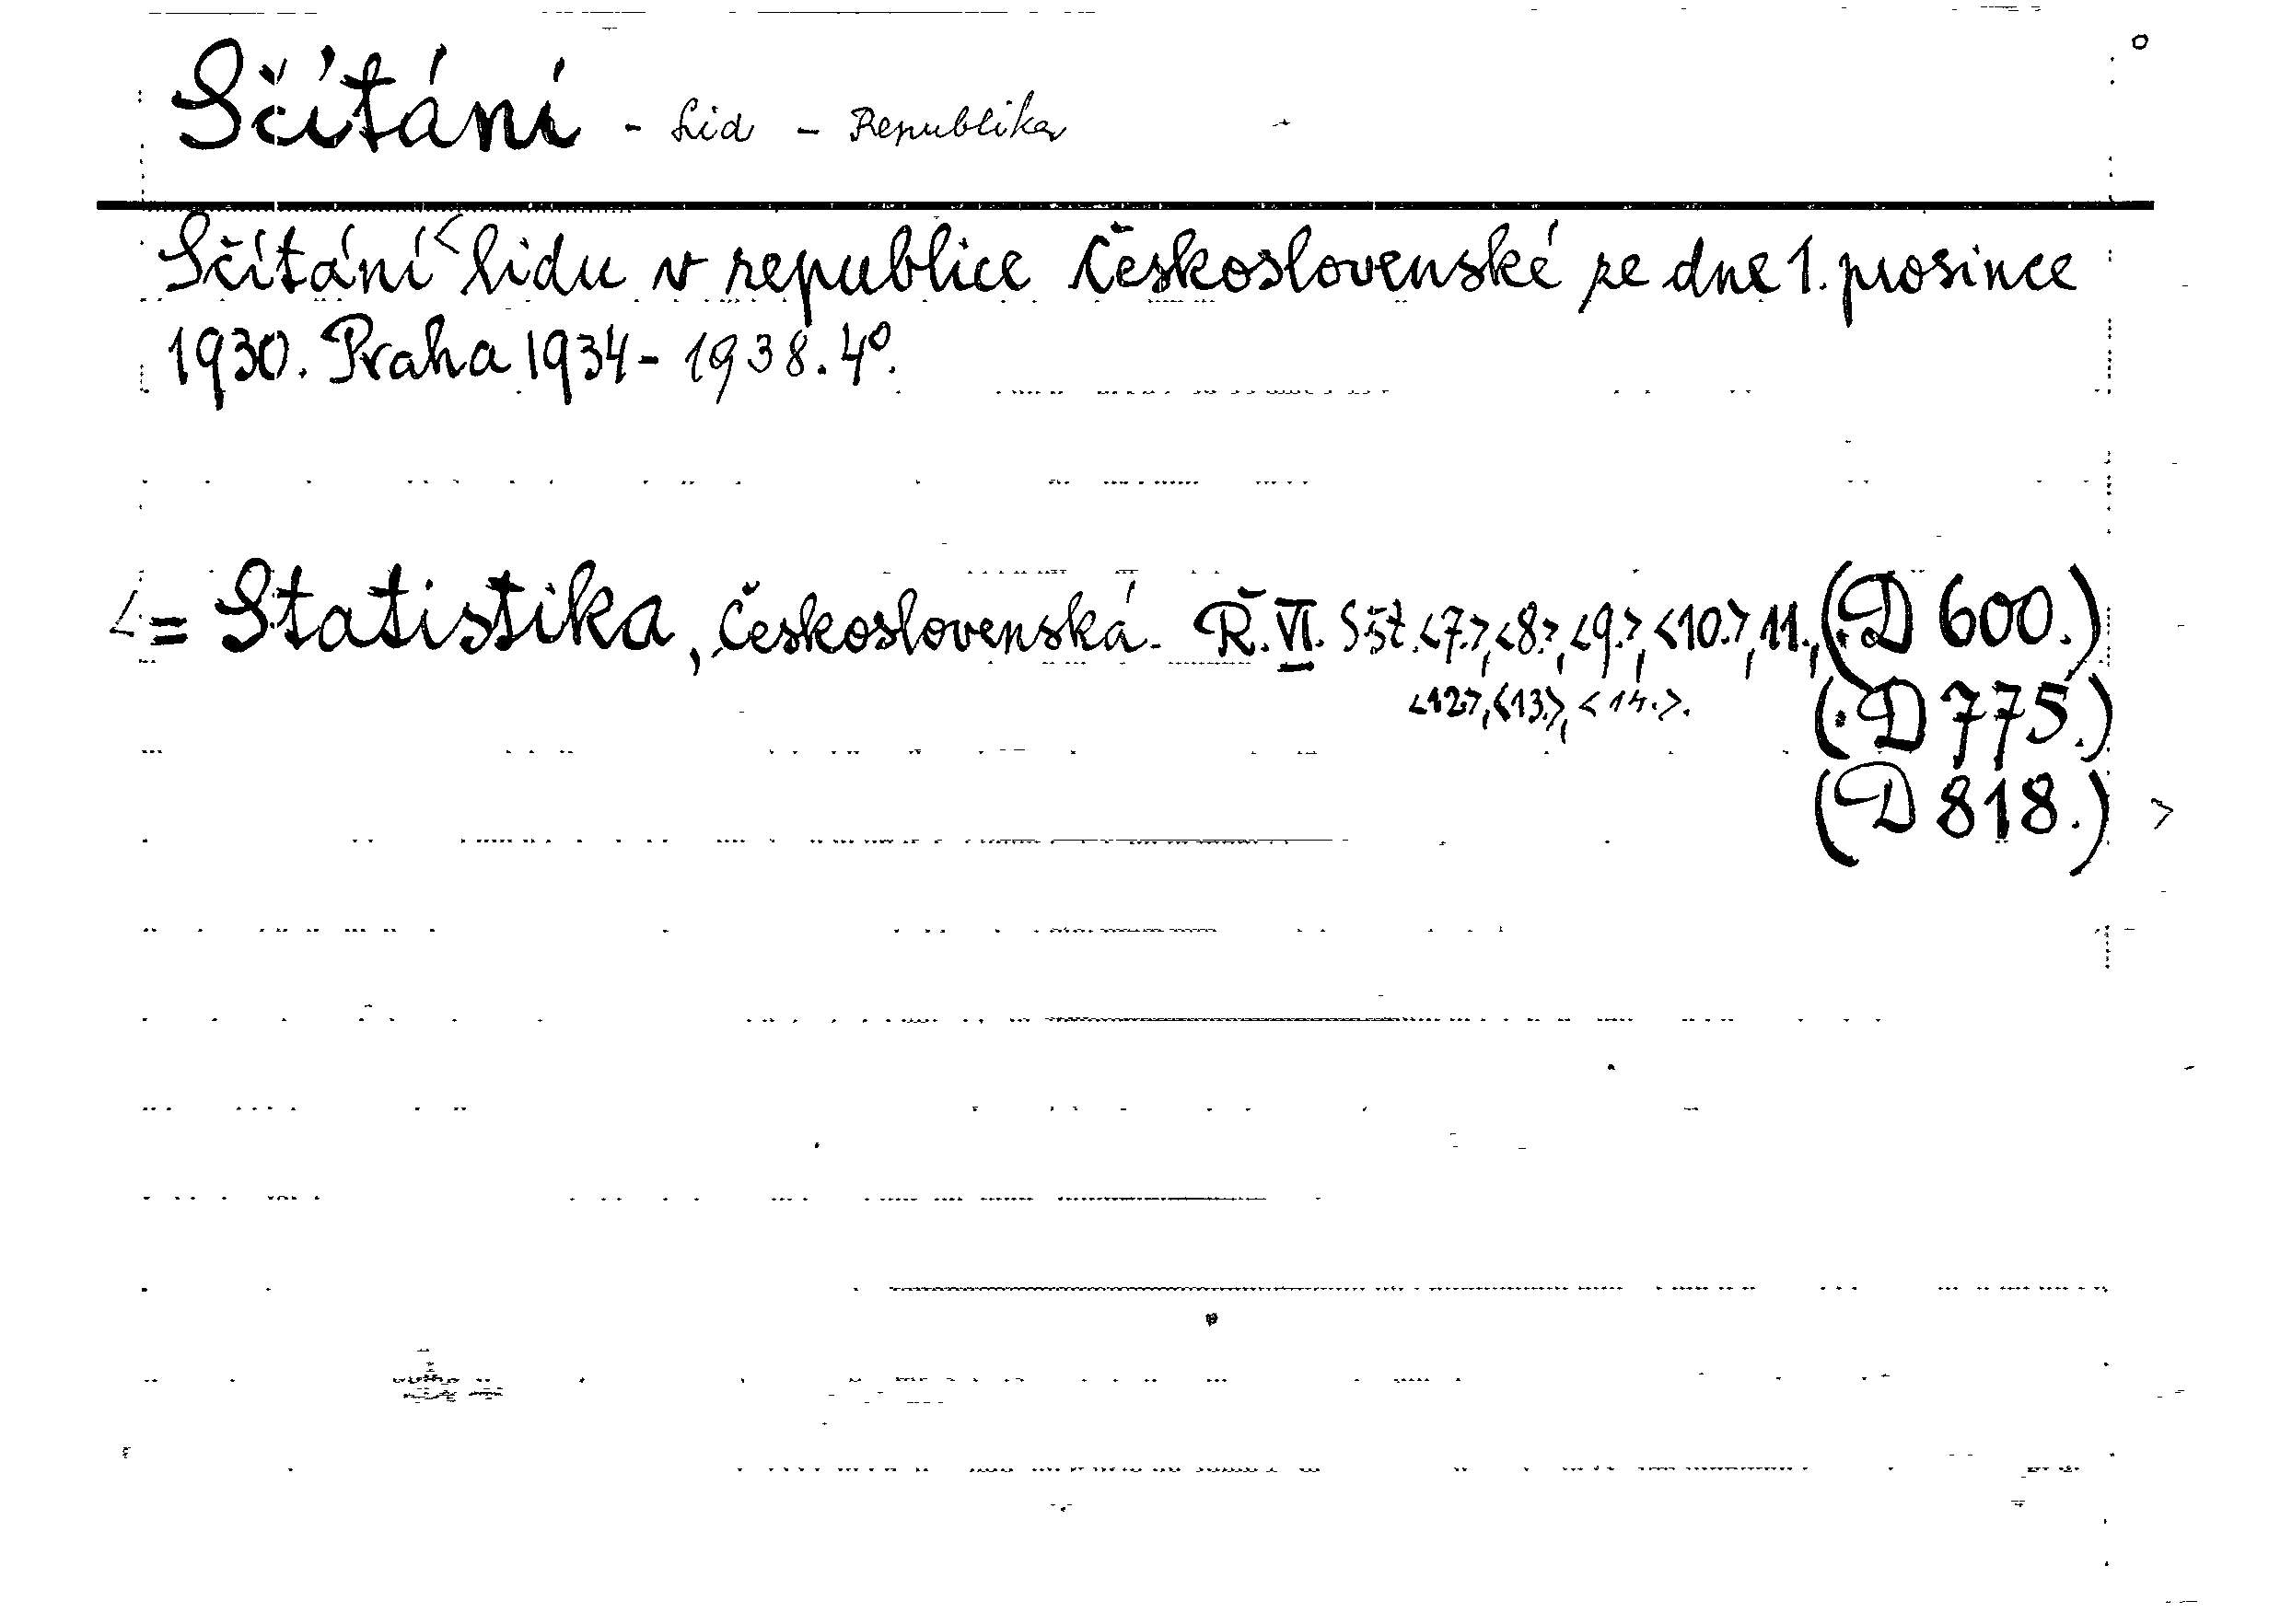 Sčítání - Lid - Republika
Sčítání < lidu v republice Československé ze dne 1. prosince
1930. Praha 1934 - 1938. 4°.
<= Statistika, Československá. Ř. VI. Sšt. <7.>, <8.>, <9.>, <10.>, 11., (D 600.)
<12.>, <13.>, <14.>. (D 775.)
(D 818.) >